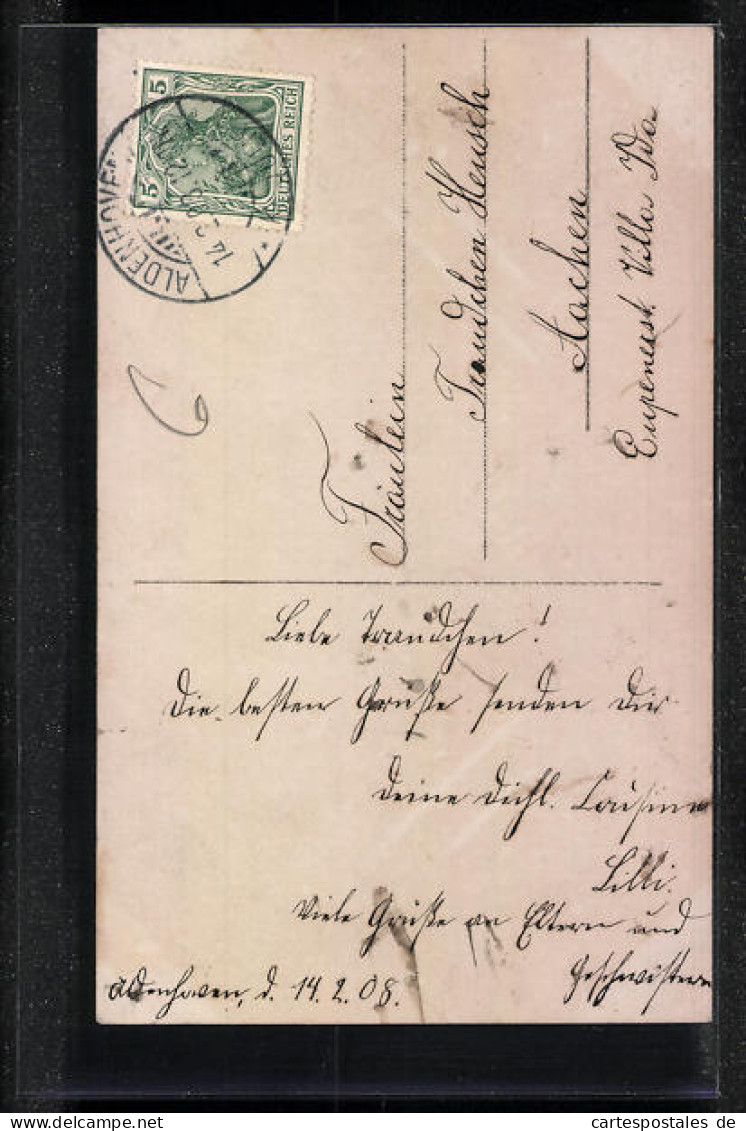 5
5
DEUTSCHES REICH
ALDENHOVEN
14.2.08
Fräulein
Traudchen Heusch
Aachen
Eupenerst. Villa Ida
Liebe Traudchen!
Die besten Grüße senden Dir
Deine Dichl. Cousine
Lilli.
Viele Grüße an Eltern und
Geschwistern
Aldenhoven, d. 14.2.08.
cartespostales de